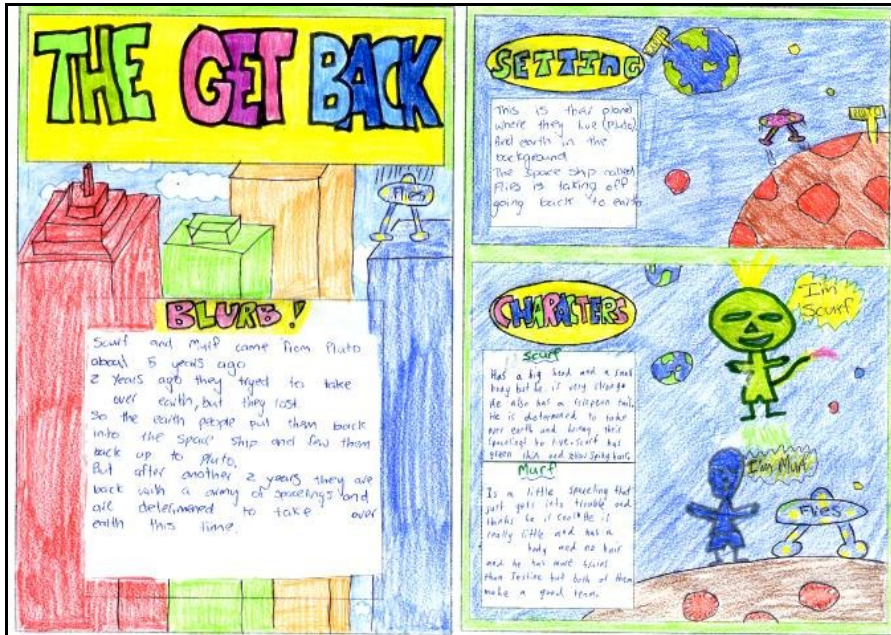 THE GET BACK
Flies
BLURB!
Scurf and Murf came from Pluto
about 5 years ago
2 years ago they tryed to take
over earth, but they lost.
So the earth people put them back
into the space ship and flew them
back up to Pluto.
But after another 2 years they are
back with a army of spacelings and
are determened to take over
earth this time.
SETTING
This is their planet
where they live (Pluto)
And earth in the
background
The space ship called
Flies is taking off
going back to earth
PLUTO
CHARACTERS
Scurf
Has a big head and a small
body but he is very strange
He also has a tail.
He is determined to take
over earth and bring this
spacelings to live. Scurf has
green skin and spikey hair.
I'm
Scurf
Murf
Is a little spaceling that
just gets into trouble and
thinks he is cool. He is
really little and has a
body and no hair
and he has more brains
than but both of them
make a good team.
I'm Murf
Flies